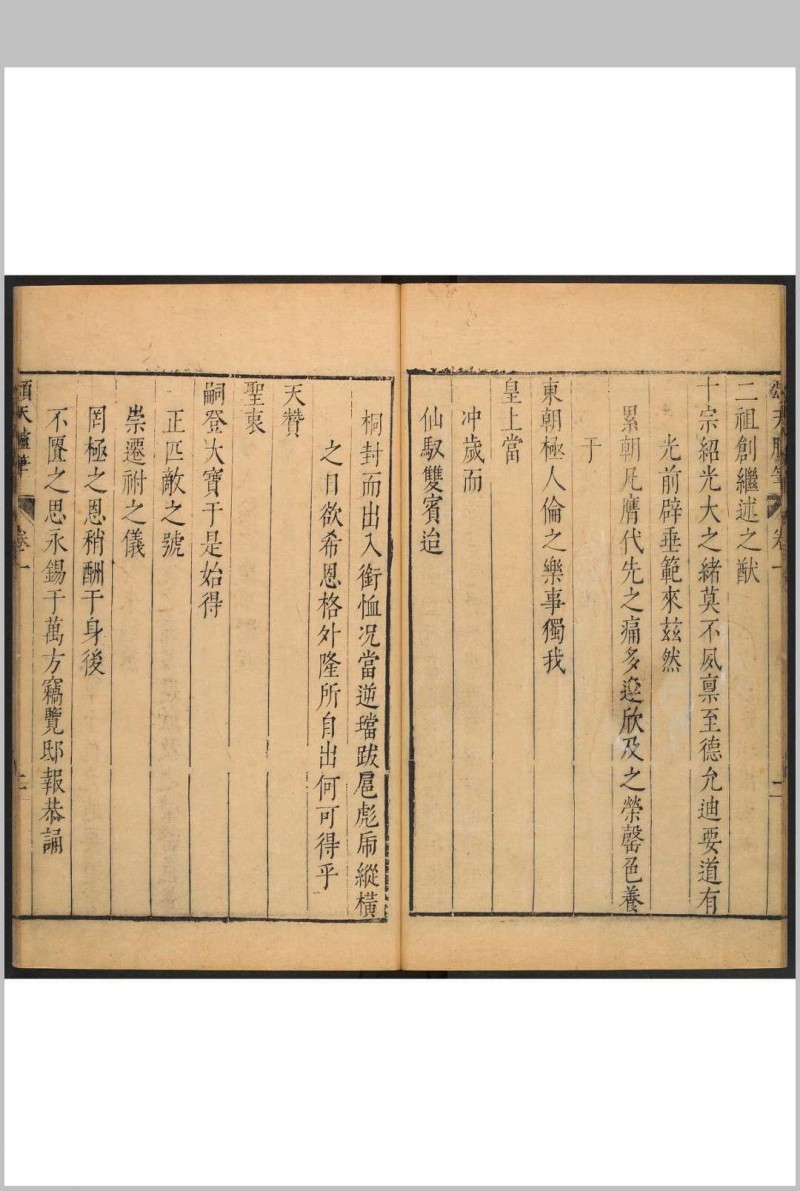 頌天臚筆 卷一 二
二祖創繼述之猷
十宗紹光大之緒莫不夙禀至德允迪要道有
光前辟垂範來茲然
累朝凡膺代先之痛多邈欣及之榮罄色養
于
東朝極人倫之樂事獨我
皇上當
冲歲而
仙馭雙賓迨
桐封而出入銜恤况當逆璫跋扈彪虎縱橫
之日欲希恩格外隆所自出何可得乎
天贊
聖衷
嗣登大寶于是始得
正匹敵之號
崇遷祔之儀
罔極之恩稍酬于身後
不匱之思永錫于萬方竊覽邸報恭誦
頌天臚筆 卷一